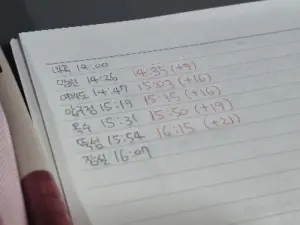 마곡 14:00
망원 14:26 14:35 (+9)
여의도 14:47 15:03 (+16)
압구정 15:19 15:35 (+16)
옥수 15:31 15:50 (+19)
뚝섬 15:54 16:15 (+21)
잠실 16:07